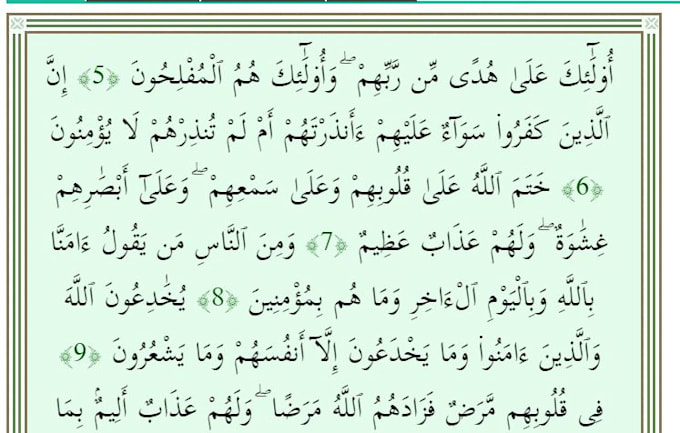 أُو۟لَٰٓئِكَ عَلَىٰ هُدًى مِّن رَّبِّهِمْ ۖ وَأُو۟لَٰٓئِكَ هُمُ ٱلْمُفْلِحُونَ ﴿5﴾ إِنَّ
ٱلَّذِينَ كَفَرُوا۟ سَوَآءٌ عَلَيْهِمْ ءَأَنذَرْتَهُمْ أَمْ لَمْ تُنذِرْهُمْ لَا يُؤْمِنُونَ
﴿6﴾ خَتَمَ ٱللَّهُ عَلَىٰ قُلُوبِهِمْ وَعَلَىٰ سَمْعِهِمْ ۖ وَعَلَىٰٓ أَبْصَٰرِهِمْ
غِشَٰوَةٌ ۖ وَلَهُمْ عَذَابٌ عَظِيمٌ ﴿7﴾ وَمِنَ ٱلنَّاسِ مَن يَقُولُ ءَامَنَّا
بِٱللَّهِ وَبِٱلْيَوْمِ ٱلْءَاخِرِ وَمَا هُم بِمُؤْمِنِينَ ﴿8﴾ يُخَٰدِعُونَ ٱللَّهَ
وَٱلَّذِينَ ءَامَنُوا۟ وَمَا يَخْدَعُونَ إِلَّآ أَنفُسَهُمْ وَمَا يَشْعُرُونَ ﴿9﴾
فِى قُلُوبِهِم مَّرَضٌ فَزَادَهُمُ ٱللَّهُ مَرَضًا ۖ وَلَهُمْ عَذَابٌ أَلِيمٌۢ بِمَا